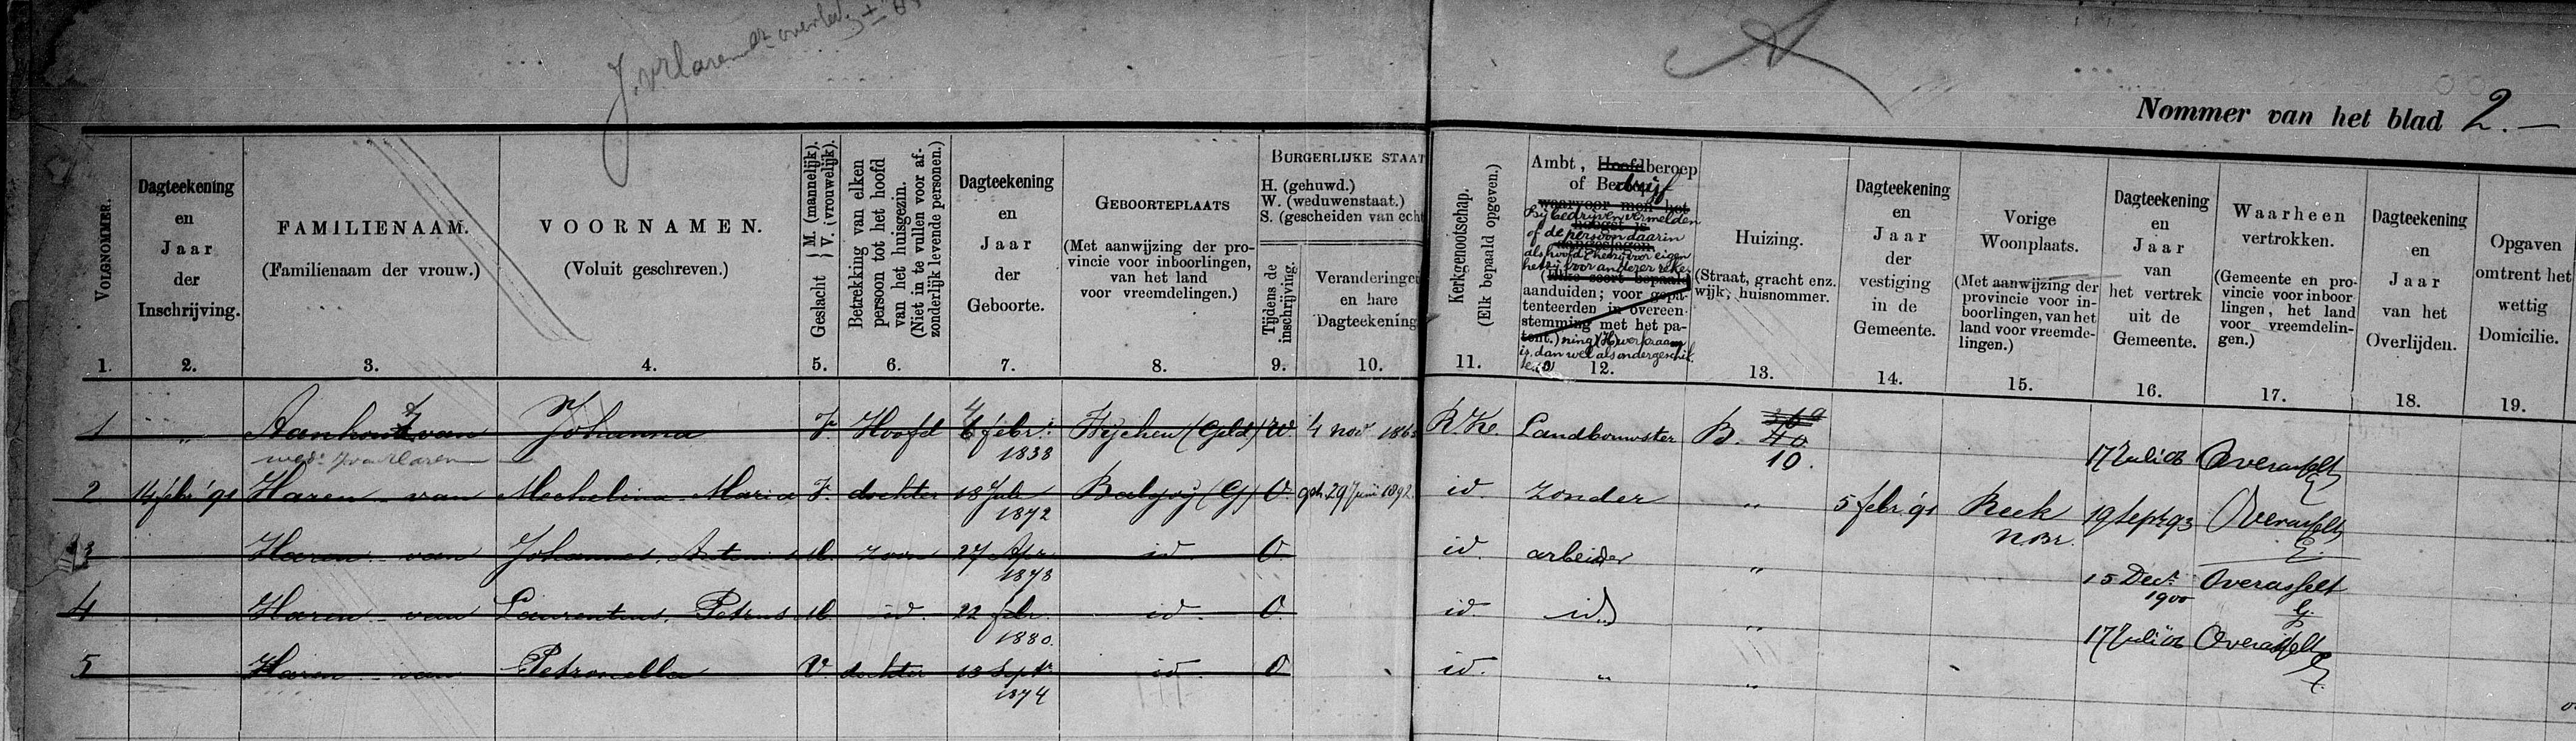 J. v Haren overled.
A
Nommer van het blad 2.—
VOLGNOMMER.
1.
Dagteekening
en
Jaar
der
Inschrijving.
2.
FAMILIENAAM.
(Familienaam der vrouw.)
3.
VOORNAMEN.
(Voluit geschreven.)
4.
Geslacht { M. (mannelijk). V. (vrouwelijk).
5.
Betrekking van elken
persoon tot het hoofd
van het huisgezin.
(Niet in te vullen voor af-
zonderlijk levende personen.)
6.
Dagteekening
en
Jaar
der
Geboorte.
7.
GEBOORTEPLAATS
(Met aanwijzing der pro-
vincie voor inboorlingen,
van het land
voor vreemdelingen.)
8.
BURGERLIJKE STAAT
H. (gehuwd.)
W. (weduwenstaat.)
S. (gescheiden van echt
Tijdens de
inschrijving.
9.
Veranderingen
en hare
Dagteekening
10.
Kerkgenootschap.
(Elk bepaald opgeven.)
11.
Ambt, Hoofdberoep
of Bedrijf
waarvoor men het
Bij bedrijven vermelden
of de persoon daarin
aangeslagen
als hoofd hetzij voor eigen
hetzij voor anderer reke-
(Elke soort bepaald
aanduiden; voor gepa-
tenteerden in overeen-
stemming met het pa-
tent.) ning (H) werkzaam
is, dan wel als ondergeschik-
te (O)
12.
Huizing.
(Straat, gracht enz.
wijk, huisnommer.
13.
Dagteekening
en
Jaar
der
vestiging
in de
Gemeente.
14.
Vorige
Woonplaats.
(Met aanwijzing der
provincie voor in-
boorlingen, van het
land voor vreemde-
lingen.)
15.
Dagteekening
en
Jaar
van
het vertrek
uit de
Gemeente.
16.
Waarheen
vertrokken.
(Gemeente en pro-
vincie voor inboor
lingen, het land
voor vreemdelin-
gen.)
17.
Dagteekening
en
Jaar
van het
Overlijden.
18.
Opgaven
omtrent het
wettig
Domicilie.
19.
1 " Aanhout van Johanna V. Hoofd 4 febr. 1838 Wychen (Geld) W. 4 nov 186 R.K. Landbouwster B. 40 10. 17 Juli 06 Overasselt G
wede J van Haren
2 14 febr '91 Haren van Mechelina Maria V. dochter 18 Juli 1872 Balgoij (G) O geh. 29 Juni 1892. id. zonder " 5 febr '91 Reek N.Br. 19 Sept 93 Overasselt G.
3 Haren van Johannes, Antonius M. zoon 27 Apr. 1878 id O. id. arbeider " 15 Decr. 1900 Overasselt G.
4 Haren van Laurentius, Petrus M. id. 22 febr. 1880. id. O. id. id " 17 Juli 06 Overasselt G.
5 Haren van Petronella V. dochter 13 Septr. 1874 id. O id. " "